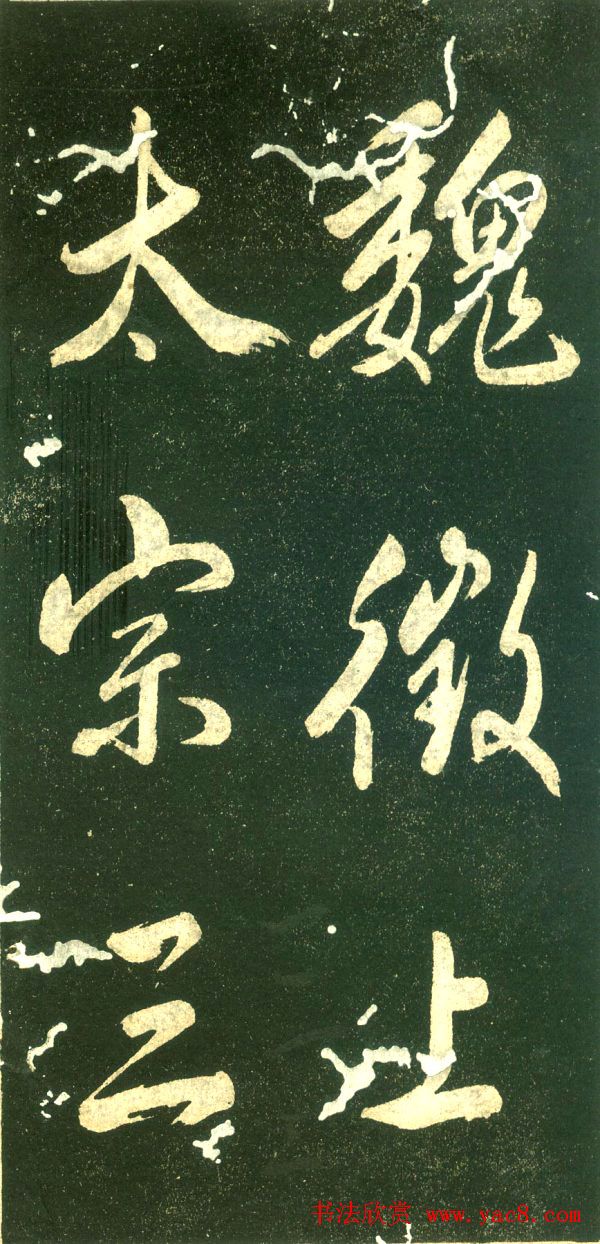 魏徵上
太宗三
书法欣赏 www.yac8.com